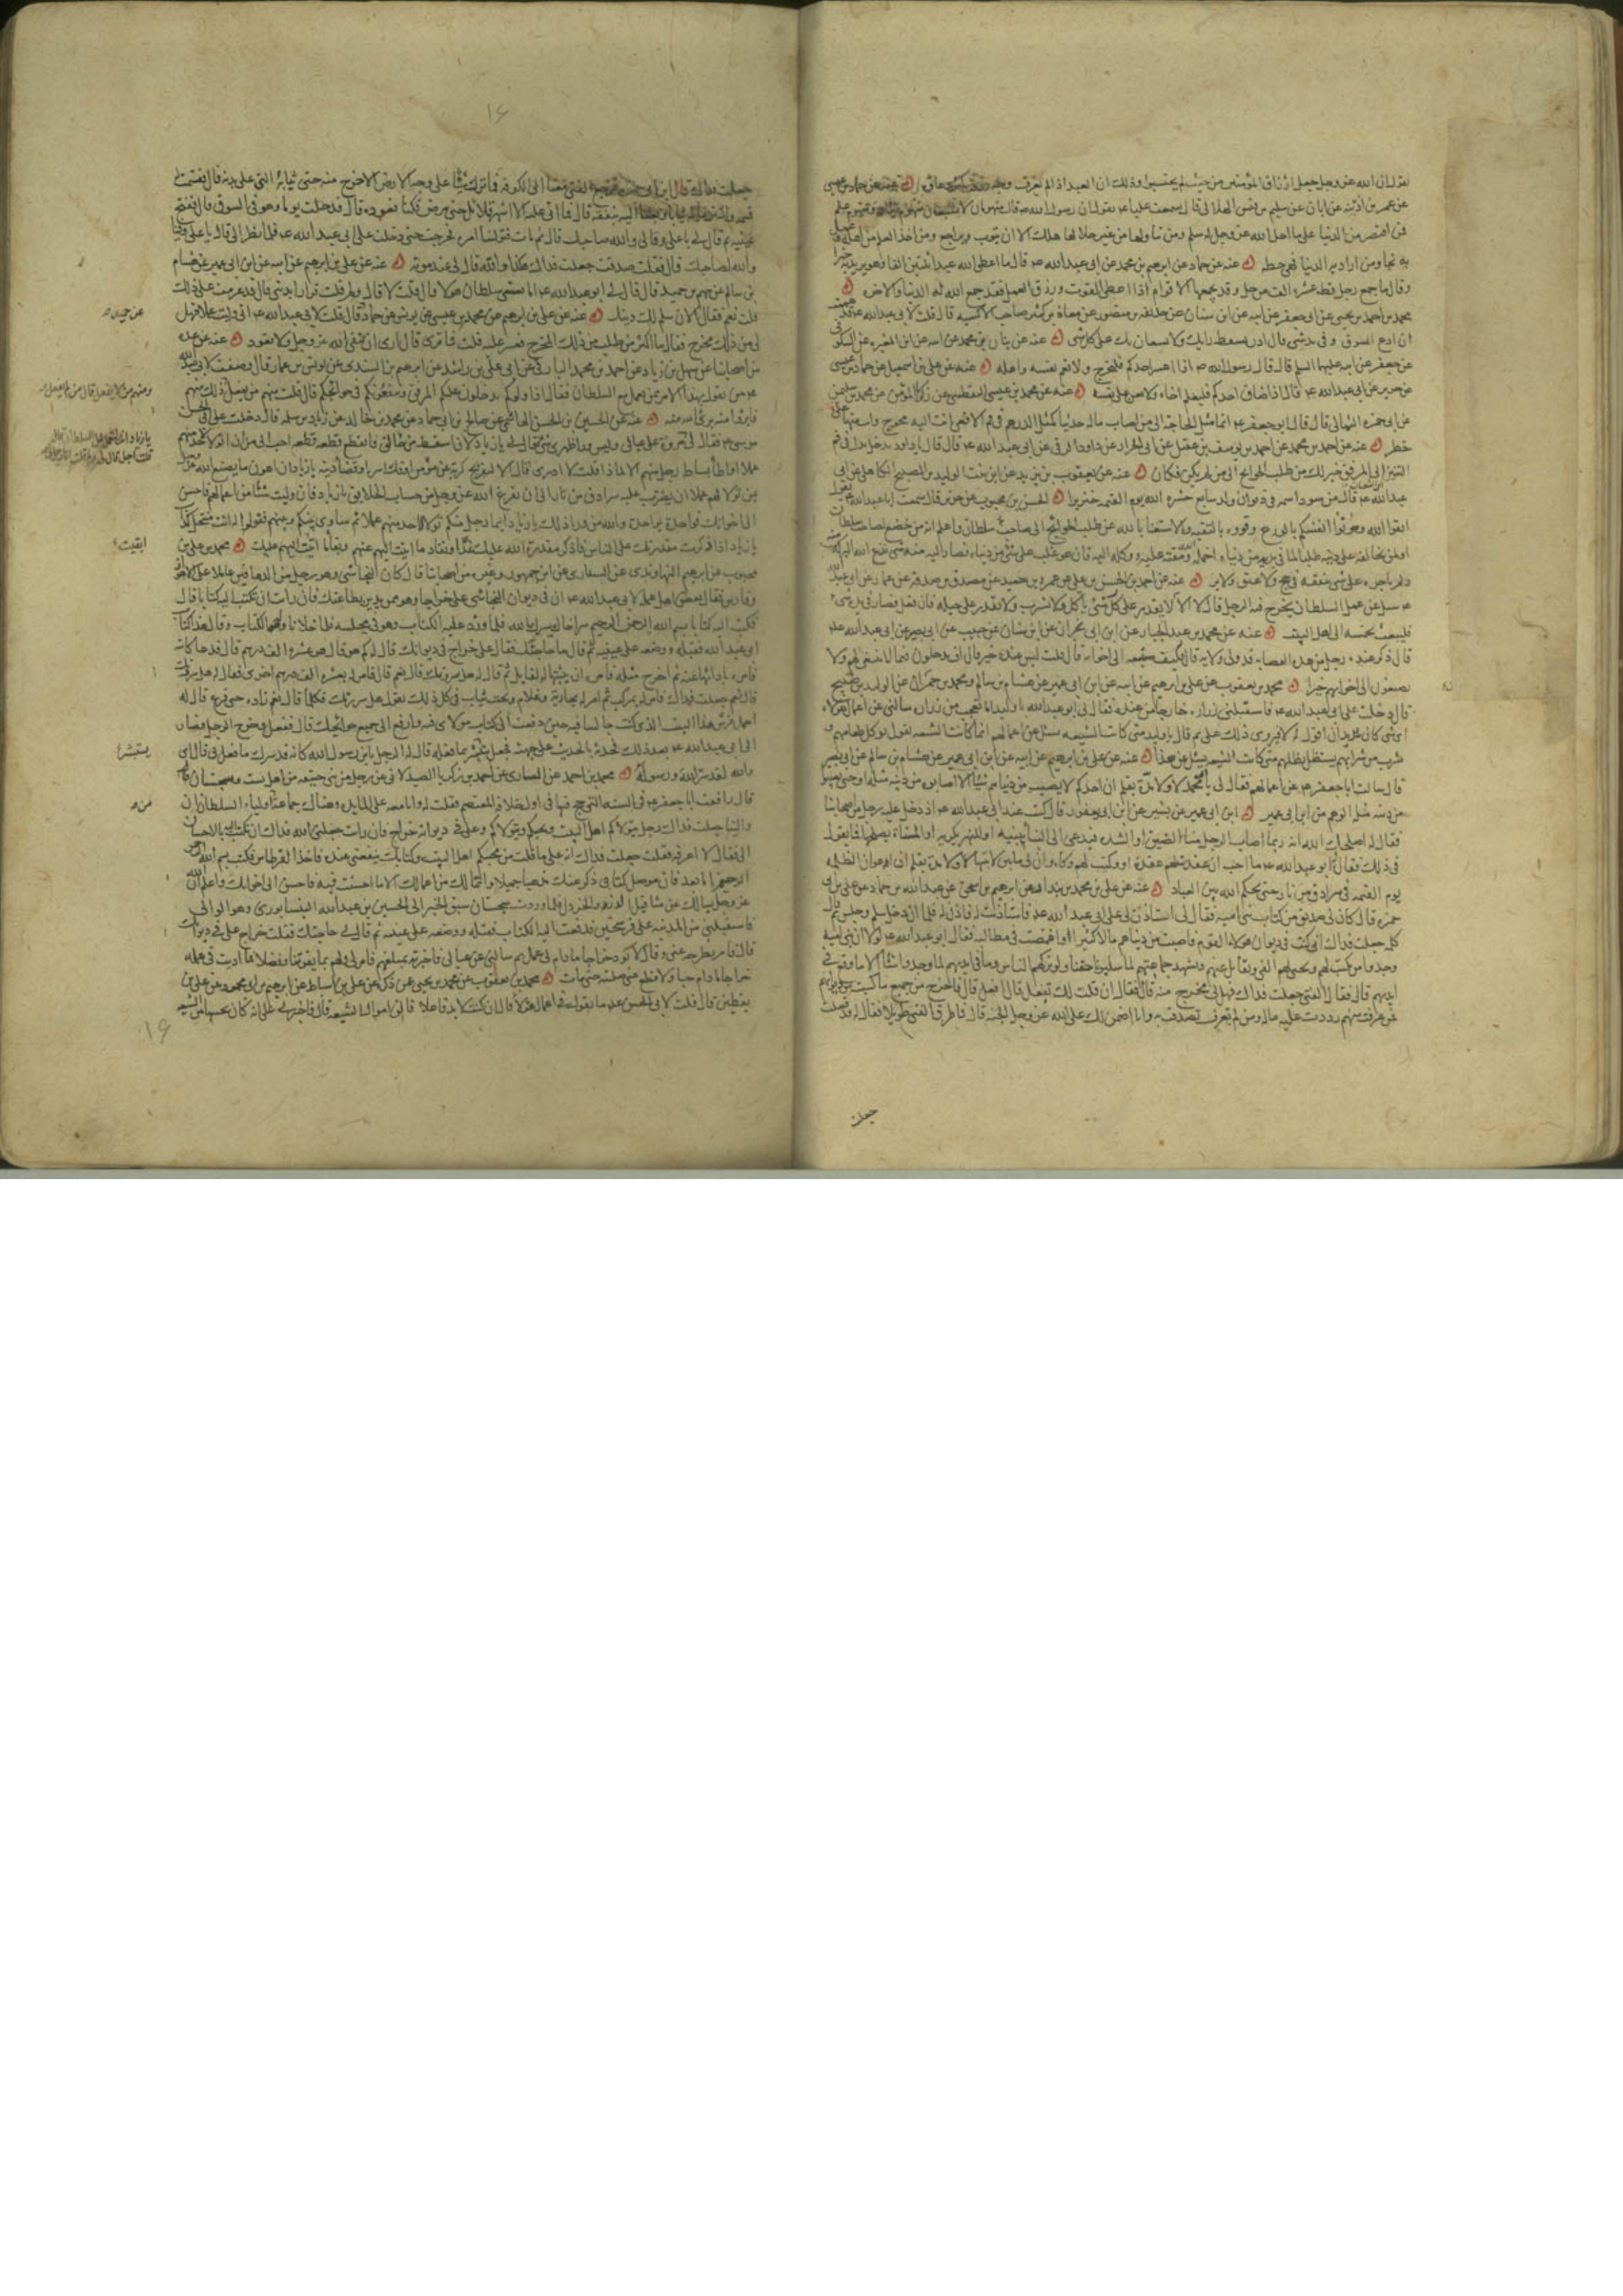 يقول ان الله عز وجل جعل ارزاق المؤمنين من حيث لم يحتسبوا وذلك ان العبد اذا لم يعرف وجه رزقه كثر دعاؤه
عن عمر بن اذينه عن ابان عن سليم بن قيس الهلالى قال سمعت عليا ع يقول قال رسول الله ص منهومان لا يشبعان منهوم دنيا ومنهوم علم
فمن اقتصر من الدنيا على ما احل الله عز وجل له سلم ومن تناولها من غير حلها هلك الا ان يتوب ويراجع ومن اخذ العلم من اهله وعمل
به نجا ومن اراد به الدنيا فهى حظه عنه عن حماد عن ابرهيم بن محمد عن ابى عبد الله ع قال ما اعطى الله عبدا ثلثين الفا وهو يريد به خيرا
وقال ما جمع رجل قط عشرة الف من حل وقد يجمعها لاقوام اذا اعطى القوت ورزق العمل فقد جمع الله له الدنيا والاخره
محمد بن احمد بن يحيى عن ابى جعفر عن ابيه عن ابن سنان عن حذيفه بن منصور عن معاذ بن كثير صاحب الاكسيه قال قلت لابى عبد الله ع قد هممت
ان ادع السوق وفى يدى شى قال اذن يسقط رايك ولا يستعان بك على كل شى عنه عن بنان بن محمد عن ابيه عن ابن المغيره عن السكونى
عن جعفر عن ابيه عليهما السلم قال قال رسول الله ص اذا اعسر احدكم فليخرج ولا يغم نفسه واهله عنه عن على بن اسمعيل عن حماد بن عيسى
عن حريز عن ابى عبد الله ع قال اذا ضاق احدكم فليعلم اخاه ولا يعن على نفسه عنه عن محمد بن عيسى اليقطينى عن زكريا المؤمن عن محمد بن سليمن
عن ابى حمزه الثمالى قال قال ابو جعفر ع انما مثل الحاجة الى من اصاب ماله حديثا كمثل الدرهم فى فم الافعى انت اليه محوج وانت منها على
خطر عنه عن احمد بن محمد عن احمد بن يوسف بن عقيل عن ابى على الخراز عن داود الرقى عن ابى عبد الله ع قال قال يا داود تدخل يدك فى فم
التنين الى المرفق خير لك من طلب الحوائج الى من لم يكن فكان عنه عن يعقوب بن يزيد عن ابن بنت الوليد بن صبيح الكاهلى عن ابى
عبد الله ع قال من سود اسمه فى ديوان ولد سابع حشره الله يوم القيمه خنزيرا الحسن بن محبوب عن حريز قال سمعت ابا عبد الله ع يقول
اتقوا الله وصونوا انفسكم بالورع وقووه بالتقيه والاستغنا بالله عن طلب الحوائج الى صاحب سلطان واعلم انه من خضع لصاحب سلطان
او لمن يخالفه على دينه طلبا لما فى يديه من دنياه اخمله الله ومقته عليه ووكله اليه فان هو غلب على شى من دنياه فصار اليه منه شى نزع الله البركة منه
ولم ياجره على شى ينفقه فى حج ولا عتق ولا بر عنه عن احمد بن الحسن بن على عن عمرو بن سعيد عن مصدق بن صدقه عن عمار عن ابى عبد الله
ع سئل عن عمل السلطان يخرج فيه الرجل قال لا الا ان لا يقدر على شى ياكل ولا يشرب ولا يقدر على حيله فان فعل فصار فى يده شى
فليبعث بخمسه الى اهل البيت عنه عن محمد بن عبد الجبار عن ابن ابى نجران عن ابن سنان عن حبيب عن ابى بصير عن ابى عبد الله ع
قال ذكر عنده رجل من هذه العصابه قد ولى ولايه قال كيف صنيعه الى اخوانه قال قلت ليس عنده خير قال اف يدخلون فيما لا ينبغى لهم ولا
يصنعون الى اخوانهم خيرا محمد بن يعقوب عن على بن ابرهيم عن ابيه عن ابن ابى عمير عن هشام بن سالم ومحمد بن حمران عن الوليد بن صبيح
قال دخلت على ابى عبد الله ع فاستقبلنى زراره خارجا من عنده فقال لى ابو عبد الله يا وليد اما تعجب من زراره سالنى عن اعمال هؤلاء
اى شى كان يريد ان اقول له لا فيروى ذلك على ثم قال يا وليد متى كانت الشيعه تسئل عن اعمالهم انما كانت الشيعه تقول يؤكل طعامهم و
يشرب من شرابهم ويستظل بظلهم متى كانت الشيعه تسئل عن هذا عنه عن على بن ابرهيم عن ابيه عن ابن ابى عمير عن هشام بن سالم عن ابى بصير
قال سالت ابا جعفر ع عن اعمالهم فقال لى يا ابا محمد لا ولا مدة بقلم ان احدكم لا يصيب من دنياهم شيئا الا اصابوا من دينه مثله او حتى يصيبوا
من دينه مثله الوهم من ابن ابى عمير ابن ابى عمير عن بشير عن ابن ابى يعفور قال كنت عند ابى عبد الله ع اذ دخل عليه رجل من اصحابنا
فقال له اصلحك الله انه ربما اصاب الرجل منا الضيق او الشده فيدعى الى البنا يبنيه او النهر يكريه او المسناة يصلحها فما تقول
فى ذلك فقال ابو عبد الله ع ما احب ان عقدت لهم عقدة او وكيت لهم وكاء وان لى ما بين لابتيها لا ولا مدة بقلم ان اعوان الظلمه
يوم القيمه فى سرادق من نار حتى يحكم الله بين العباد عنه عن على بن محمد بن بندار عن ابرهيم بن اسحق عن عبد الله بن حماد عن على بن ابى
حمزه قال كان لى صديق من كتاب بنى اميه فقال لى استاذن لى على ابى عبد الله ع فاستاذنت له فاذن له فلما ان دخل سلم وجلس ثم قال
جعلت فداك انى كنت فى ديوان هؤلاء القوم فاصبت من دنياهم مالا كثيرا واغمضت فى مطالبه فقال ابو عبد الله ع لولا ان بنى اميه
وجدوا من يكتب لهم ويجبى لهم الفى ويقاتل عنهم ويشهد جماعتهم لما سلبونا حقنا ولو تركهم الناس وما فى ايديهم لما وجدوا شيئا الا ما وقع فى
ايديهم قال فقال الفتى جعلت فداك فهل لى مخرج منه قال فقال ان قلت لك تفعل قال افعل قال فاخرج من جميع ما كسبت من ديوانهم
فمن عرفت منهم رددت عليه ماله ومن لم تعرف تصدقت به وانا اضمن لك على الله عز وجل الجنه قال فاطرق الفتى طويلا فقال له قد فعلت
جعلت
١۶
جعلت فداك قال ابن ابى حمزه فرجع الفتى معنا الى الكوفه فما ترك شيئا على وجه الارض الا خرج منه حتى ثيابه التى على بدنه قال فقسمت له
قسمه واشترينا له ثيابا وبعثنا اليه بنفقه قال فما اتى عليه الا اشهر قلائل حتى مرض فكنا نعوده قال فدخلت يوما وهو فى السوق قال ففتح
عينيه ثم قال لى يا على وفا لى والله صاحبك قال ثم مات فتولينا امره فخرجت حتى دخلت على ابى عبد الله ع فلما نظر الى قال يا على وفينا
والله لصاحبك قال فقلت صدقت جعلت فداك هكذا والله قال لى عند موته عنه عن على بن ابرهيم عن ابيه عن ابن ابى عمير عن هشام
بن سالم عن جهم بن حميد قال قال لى ابو عبد الله ع اما تغشى سلطان هؤلا قال قلت لا قال ولم قلت فرارا بدينى قال قد عزمت على ذلك
قلت نعم فقال الان سلم لك دينك عنه عن على بن ابرهيم عن محمد بن عيسى عن يونس عن حماد قال قلت لابى عبد الله ع انى وليت عملا فهل
لى من ذلك مخرج فقال ما اكثر من طلب من ذلك المخرج فعسر عليه قلت فما ترى قال ارى ان تتقى الله عز وجل ولا تعود عنه عن عده
من اصحابنا عن سهل بن زياد عن احمد بن محمد البارقى عن ابى على بن راشد عن ابرهيم بن السندى عن يونس بن عمار قال وصفت لابى عبد الله
ع من يقول بهذا الامر ممن يعمل مع السلطان فقال اذا ولوكم يدخلون عليكم المرفق وينفعونكم فى حوائجكم قال قلت منهم من يفعل ذلك ومنهم
فابرؤا منه برئ الله منه عنه عن الحسين بن الحسن الهاشمى عن صالح بن ابى حماد عن محمد بن خالد عن زياد بن سلمه قال دخلت على ابى الحسن
موسى ع فقال لى يا زياد لان اسقط من حالق فاتقطع قطعه قطعه احب الى من ان اتولى لاحد منهم
عملا او اطأ بساط رجل منهم الا لماذا قلت لا ادرى قال الا لتفريج كربة عن مؤمن او فك اسره او قضاء دينه يا زياد ان اهون ما يصنع الله عز وجل
بمن تولى لهم عملا ان يضرب عليه سرادق من نار الى ان يفرغ الله عز وجل من حساب الخلايق يا زياد فان وليت شيئا من اعمالهم فاحسن
الى اخوانك فواحدة بواحدة والله من وراء ذلك يا زياد ايما رجل منكم تولى لاحد منهم عملا ثم ساوى بينكم وبينهم فقولوا له انت منتحل كذاب
يا زياد اذا ذكرت مقدرتك على الناس فاذكر مقدرة الله عليك غدا ونفاد ما اتيت اليهم عنهم وبقاء ما اتيت اليهم عليك محمد بن على بن
محبوب عن ابرهيم النهاوندى عن السيارى عن ابن جمهور وغيره من اصحابنا قال كان النجاشى وهو رجل من الدهاقين عاملا على الاهواز
وفارس فقال بعض اهل عمله لابى عبد الله ع ان فى ديوان النجاشى على خراجا وهو ممن يدين بطاعتك فان رايت ان تكتب اليه كتابا قال
فكتب اليه كتابا بسم الله الرحمن الرحيم سر اخاك يسرك الله فلما ورد عليه الكتاب وهو فى مجلسه فلما خلا ناوله الكتاب وقال هذا كتاب
ابى عبد الله فقبله ووضعه على عينيه ثم قال ما حاجتك فقال على خراج فى ديوانك قال له كم هو قال هو عشره الف درهم قال فدعا كاتبه
فامره بادائها عنه ثم اخرج مثله فامره ان يثبتها له لقابل ثم قال له هل سررتك قال نعم قال فامر له بعشره الف درهم اخرى فقال له هل سررتك
قال نعم جعلت فداك فامر له بمركب ثم امر له بجارية وغلام وتخت ثياب فى كل ذلك يقول هل سررتك فكلما قال نعم زاده حتى فرغ قال له
احمل فرش هذا البيت الذى كنت جالسا فيه حين دفعت الى كتاب مولاى فيه وارفع الى جميع حوائجك قال ففعل وخرج الرجل فصار
الى ابى عبد الله ع بعد ذلك فحدثه بالحديث على جهته فجعل يستبشر بما فعله قال له الرجل يا ابن رسول الله كانه قد سرك ما فعل بى قال اى
والله لقد سر الله ورسوله محمد بن احمد عن السيارى عن احمد بن زكريا الصيدلانى عن رجل من بنى حنيفه من اهل بست وسجستان
قال رافقت ابا جعفر ع فى السنه التى حج فيها فى اول خلافة المعتصم فقلت له وانا معه على المايده وهناك جماعة من اولياء السلطان ان
والينا جعلت فداك رجل يتولاكم اهل البيت ويحبكم وعلى فى ديوانه خراج فان رايت جعلنى الله فداك ان تكتب اليه بالاحسان
الى فقال لا اعرفه فقلت جعلت فداك انه على ما قلت من محبكم اهل البيت وكتابك ينفعنى عنده فاخذ القرطاس فكتب بسم الله الرحمن
الرحيم اما بعد فان موصل كتابى ذكر عنك مذهبا جميلا وان مالك من اعمالك الا ما احسنت فيه فاحسن الى اخوانك واعلم ان الله
عز وجل سايلك عن مثاقيل الذره والخردل فلما وردت سجستان سبق الخبر الى الحسين بن عبد الله النيسابورى وهو الوالى
فاستقبلنى من المدينه على فرسخين فدفعت اليه الكتاب فقبله ووضعه على عينيه ثم قال لى حاجتك فقلت خراج على فى ديوانك
قال فامر بطرحه عنى وقال لا تؤد خراجا ما دام لى عمل ثم سالنى عن عيالى فاخبرته بمبلغهم فامر لى ولهم بما يقوتنا وفضلا فما اديت فى عمله
خراجا ما دام حيا ولا قطع عنى صلته حتى مات محمد بن يعقوب عن محمد بن يحيى عمن ذكره عن على بن اسباط عن ابرهيم بن ابى محمود عن على بن
يقطين قال قلت لابى الحسن ع ما تقول فى اعمال هؤلاء قال ان كنت لا بد فاعلا فاتق اموال الشيعه قال فاخبرنى على انه كان يجبيها من الشيعه
عن حميد
ومنهم من لا يفعل قال من لم يفعل
ابقيت
يستبشر
من
١۶